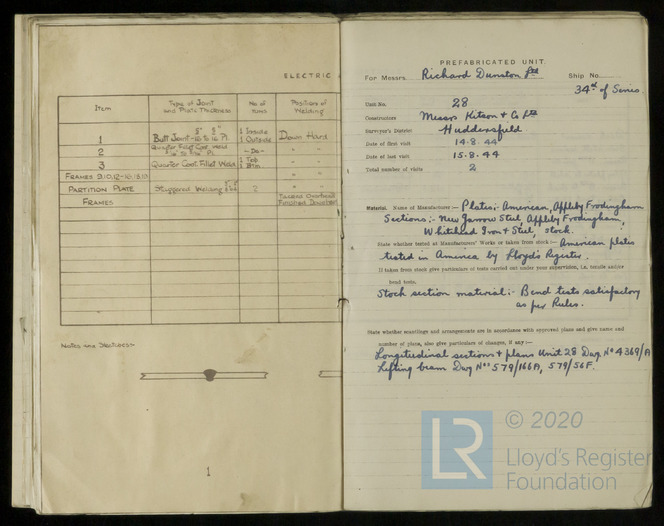 ELECTRIC
Item
Type of Joint and Plate Thickness
No of runs
Position of Welding
1
Butt Joint
Pl
1 Inside
1 Outside
Down Hand
2
Quarter Fillet Cont. Weld
Pl.
- Do -
"
"
3
Quarter Cont. Fillet Weld
1 Top
1 Btm.
"
"
FRAMES 9.10,12-16.18.20
"
"
PARTITION PLATE
Staggered Welding
2
"
FRAMES
Tacked Overhead
Finished Downhand
NOTES AND SKETCHES:-
1
PREFABRICATED UNIT.
For Messrs. Richard Dunston Ltd Ship No.
34th of Series
Unit No. 28
Constructors Messrs Kitson & Co Ltd
Surveyor's District Huddersfield
Date of first visit 14.8.44
Date of last visit 15.8.44
Total number of visits 2
Material. Name of Manufacturer:- Plates:- American, Appleby Frodingham
Sections:- New Jarrow Steel, Appleby Frodingham,
Whitehead Iron & Steel, stock.
State whether tested at Manufacturers' Works or taken from stock:- American plates
tested in America by Lloyd's Register.
If taken from stock give particulars of tests carried out under your supervision, i.e. tensile and/or
bend tests.
Stock section material:- Bend tests satisfactory
as per Rules.
State whether scantlings and arrangements are in accordance with approved plans and give name and
number of plans, also give particulars of changes, if any:-
Longitudinal sections & plans Unit 28 Dwg. No 4369/A
Lifting beam Dwg Nos 579/166A, 579/56F.
LR
© 2020
Lloyd's Register
Foundation